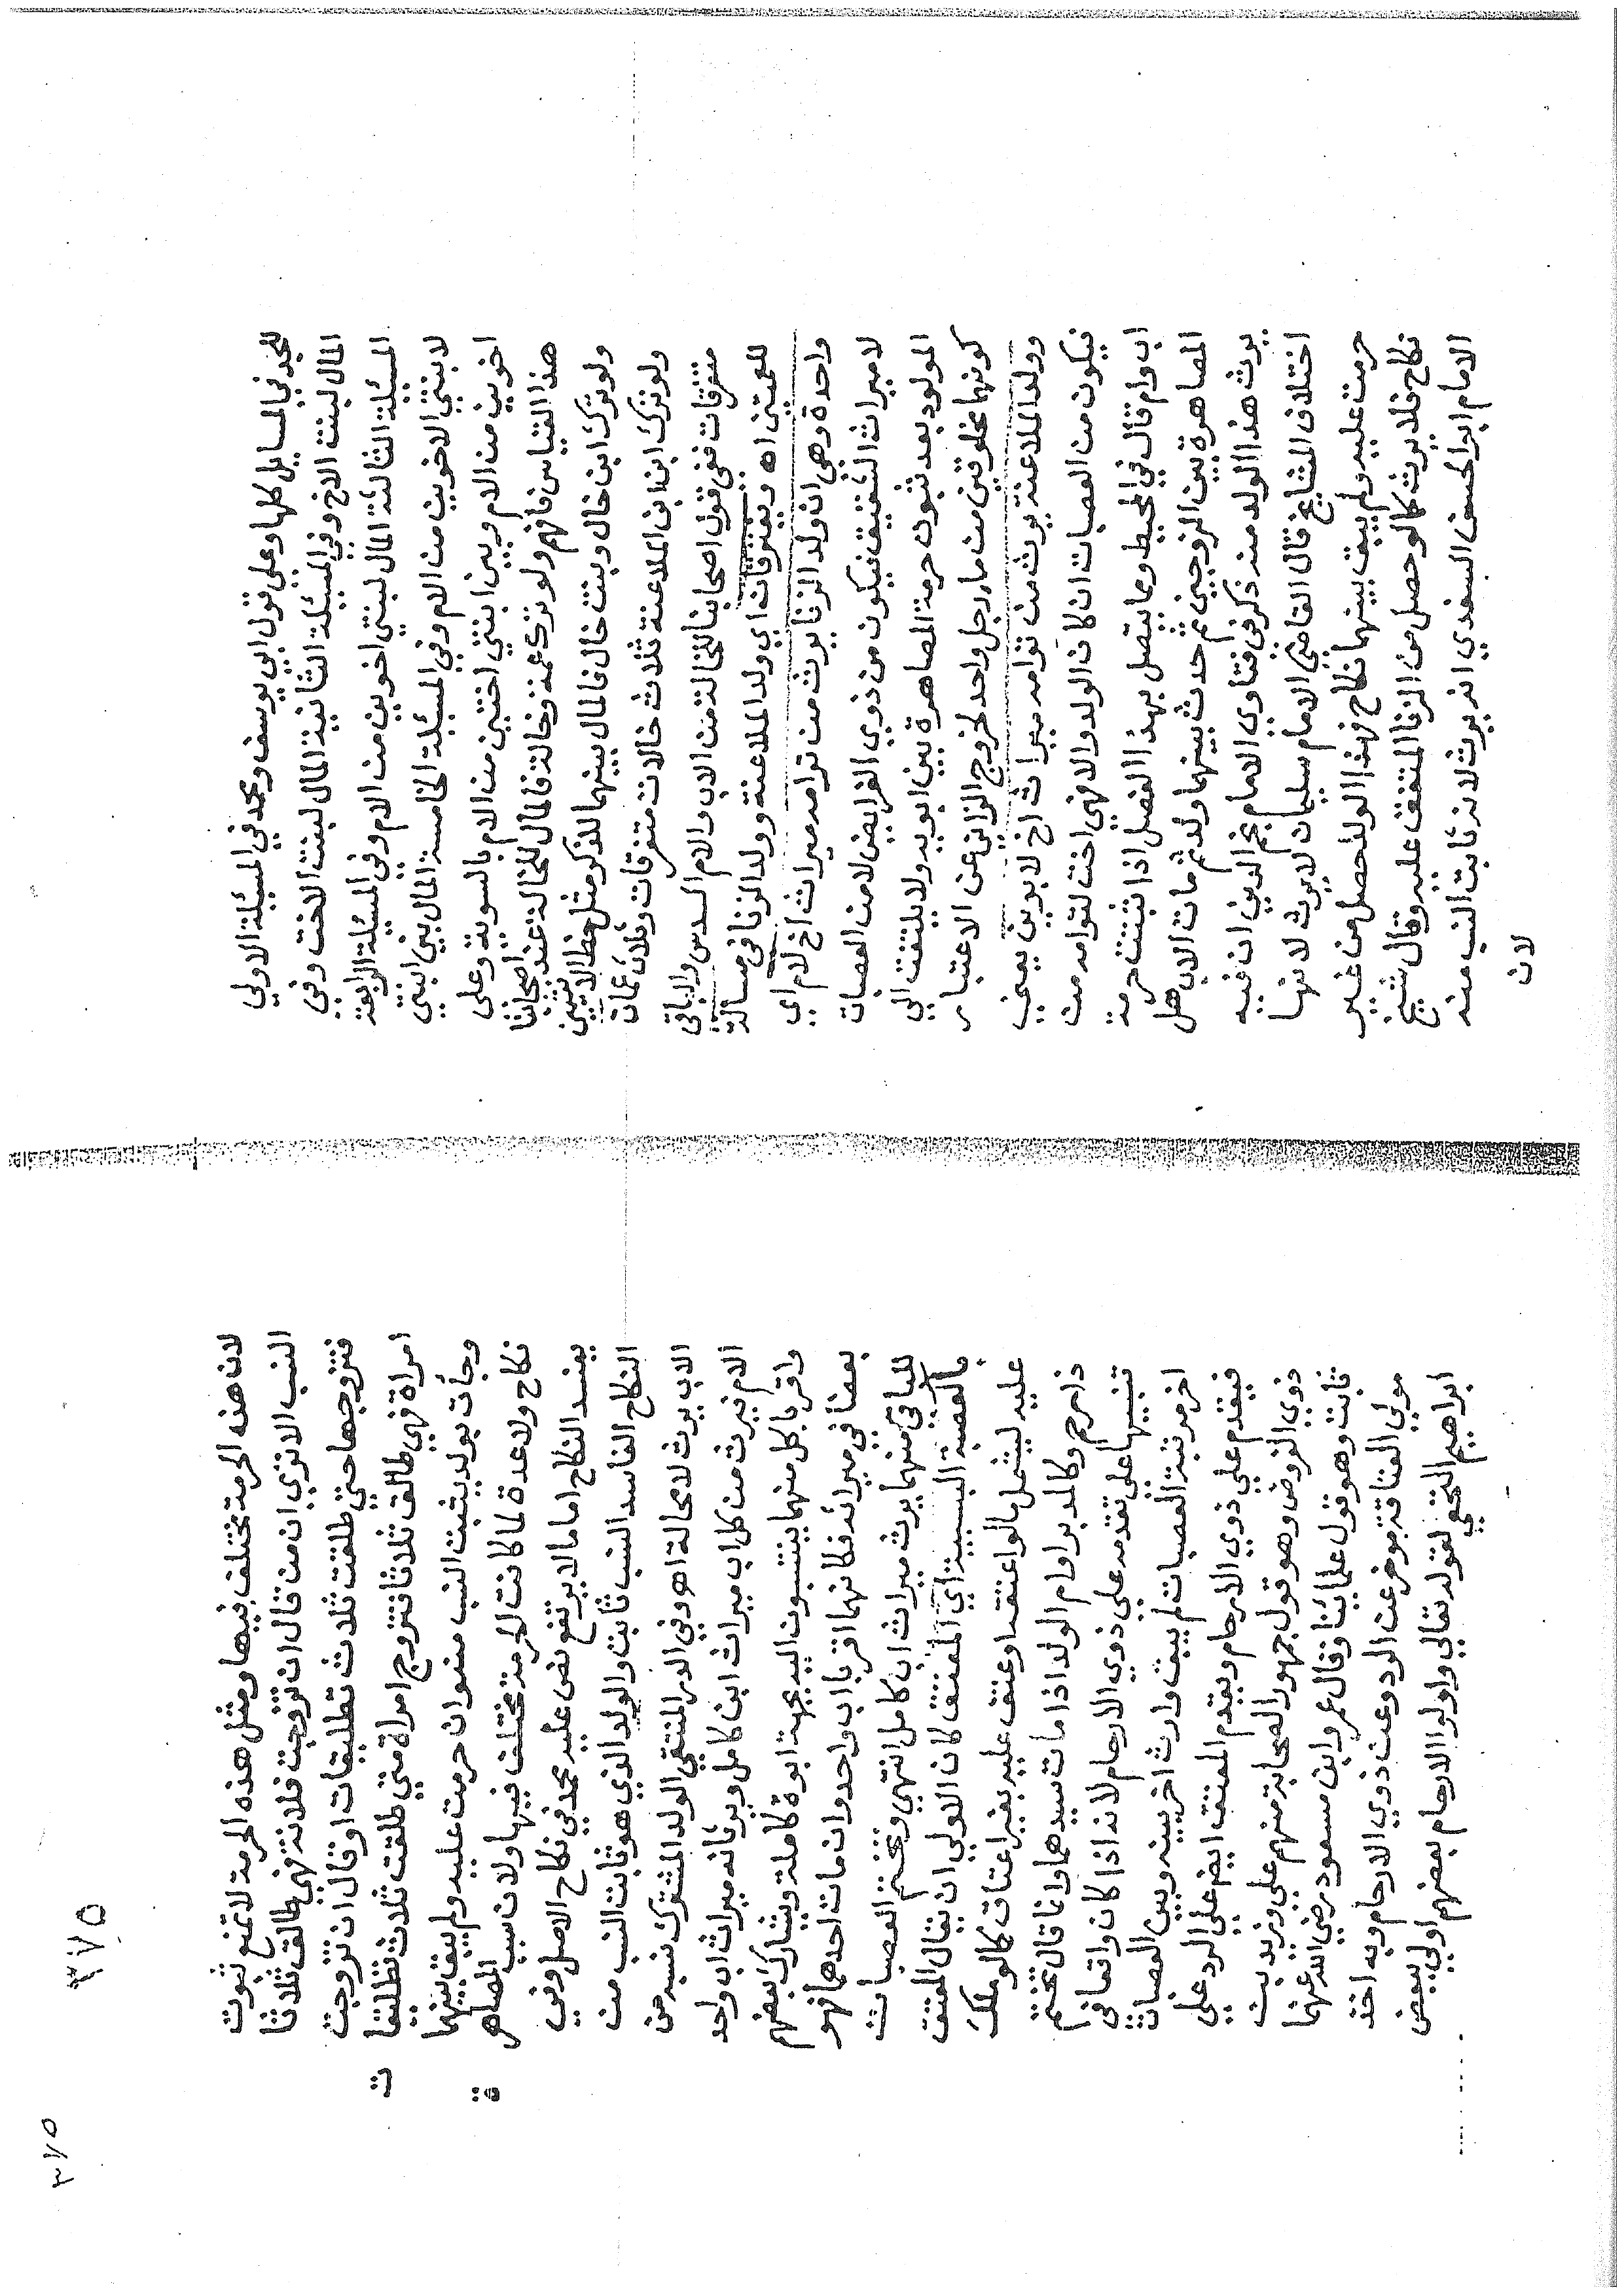 للجد في المسايل كلها وعلى قول ابي يوسف ومحمد في المسئلة الاولي
المال لبنت الاخ وفي المسئلة الثانية المال لبنت الاخت وفي
المسئلة الثالثة المال لبنتي اخوين من الام وفي المسئلة الرابعة
لابنتي الاخوين من الام وفي المسئلة الخامسة المال بين ابنتي
اخوين من الام وبين ابنتي اختين من الام بالسوية وعلى
هذا القياس فافهم ولو ترك عمة وخالة فالمال للخالة عند اصحابنا
ولو ترك ابن خال وبنت خال فالمال بينهما للذكر مثل حظ الانثيين
ولو ترك ابن ابن الملاعنة ثلاث خالات متفرقات وثلاث عمات
متفرقات ففي قول اصحابنا للخالة من الاب والام السدس والباقي
للعمتين اه ويفترقان اي ولد الملاعنة وولد الزنا في مسالة
واحدة وهي ان ولد الزنا يرث من توامه ميراث اخ لام اي
لا ميراث الشقيق فيكون من ذوي الفرايض لا من العصبات
المولود بعد ثبوت حرمة المصاهرة بين ابويه ولا يلتفت الي
كونهما مخلوقين من ماء رجل واحد لخروج الزاني عن الاعتبار
وولد الملاعنة يرث من توامه ميراث اخ لابوين يعني
فيكون من العصبات ان كان الولد والا فهي اخت لتوامه من
اب وام قال في المحيط ومما يتصل بهذا الفصل اذا ثبتت حرمة
المصاهرة بين الزوجين ثم حدث بينهما ولد ثم مات الاب هل
يرث هذا الولد منه ذكر في فتاوي الامام نجم الدين ان فيه
اختلاف المشايخ قال القاضي الامام سليمان لا يرث لانها
حرمت عليه ولم يبق بينهما نكاح فهذا الولد حصل من غير
نكاح فلا يرث كما لو حصل من الزنا المتفق عليه وقال شيخ
الامام ابو الحسن السغدي انه يرث لانه ثابت النسب منه
لان
٣٧٥
٣٧٥
لان هذه الحرمة تختلف فيها ومثل هذه الحرمة لا تمنع ثبوت
النسب الا تري ان من قال ان تزوجت فلانة فهي طالق ثلاثا
فتزوجها حتي طلقت ثلاث تطليقات او قال ان تزوجت
امراة فهي طالق ثلاثا فتزوج امراة متي طلقت ثلاث تطليقا ت
وجأت بولد يثبت النسب منه وان حرمت عليه ولم يبق بينهما
نكاح ولا عدة لما كانت الحرمة تختلف فيها ولان سبب المصاهر ة
يفسد النكاح اما ما لا يرتفع نص عليه محمد في نكاح الاصل وفي
النكاح الفاسد النسب ثابت والولد الذي هو ثابت النسب من
الاب يرث لا محالة اه وفي الدر المنتقي الولد المشترك نسبه من
الام فيرث من كل اب ميراث ابن كامل ويرثانه ميراث اب واحد
واقربا كل منهما ينتسبون اليه بجهة ابوة كاملة ويشارك بعضهم
بعضا في ميراثه فكانهما اقربا اب واحد وان مات احدهما فهو
للباقي منهما يرث ميراث اب كامل انتهي وتختم العصبات
بالعصبة السببية اي المعتق كان الاولي ان يقال المعتق
عليه ليشمل ما لو اعتقه او عتق عليه بغير اعتاق كما لو ملك
ذا رحم وكالمدبر وام الولد اذا مات سيدهما وانما قال تختم
تنبيها علي تقدمه علي ذوي الارحام لانه اذا كان واقعا في
اخر مرتبة العصبات لم يبق وارث اخر بينه وبين العصبات
فيقدم علي ذوي الارحام ويقدم المعتق ايضا علي الرد علي
ذوي الفروض وهو قول جمهور الصحابة منهم علي وزيد بن
ثابت وهو قول علمائنا وقال عمر وابن مسعود رضي الله عنهما
مولي العتاقة مؤخر عن الرد وعن ذوي الارحام وبه اخذ
ابراهيم النخعي لقوله تعالي واولوا الارحام بعضهم اولي ببعض